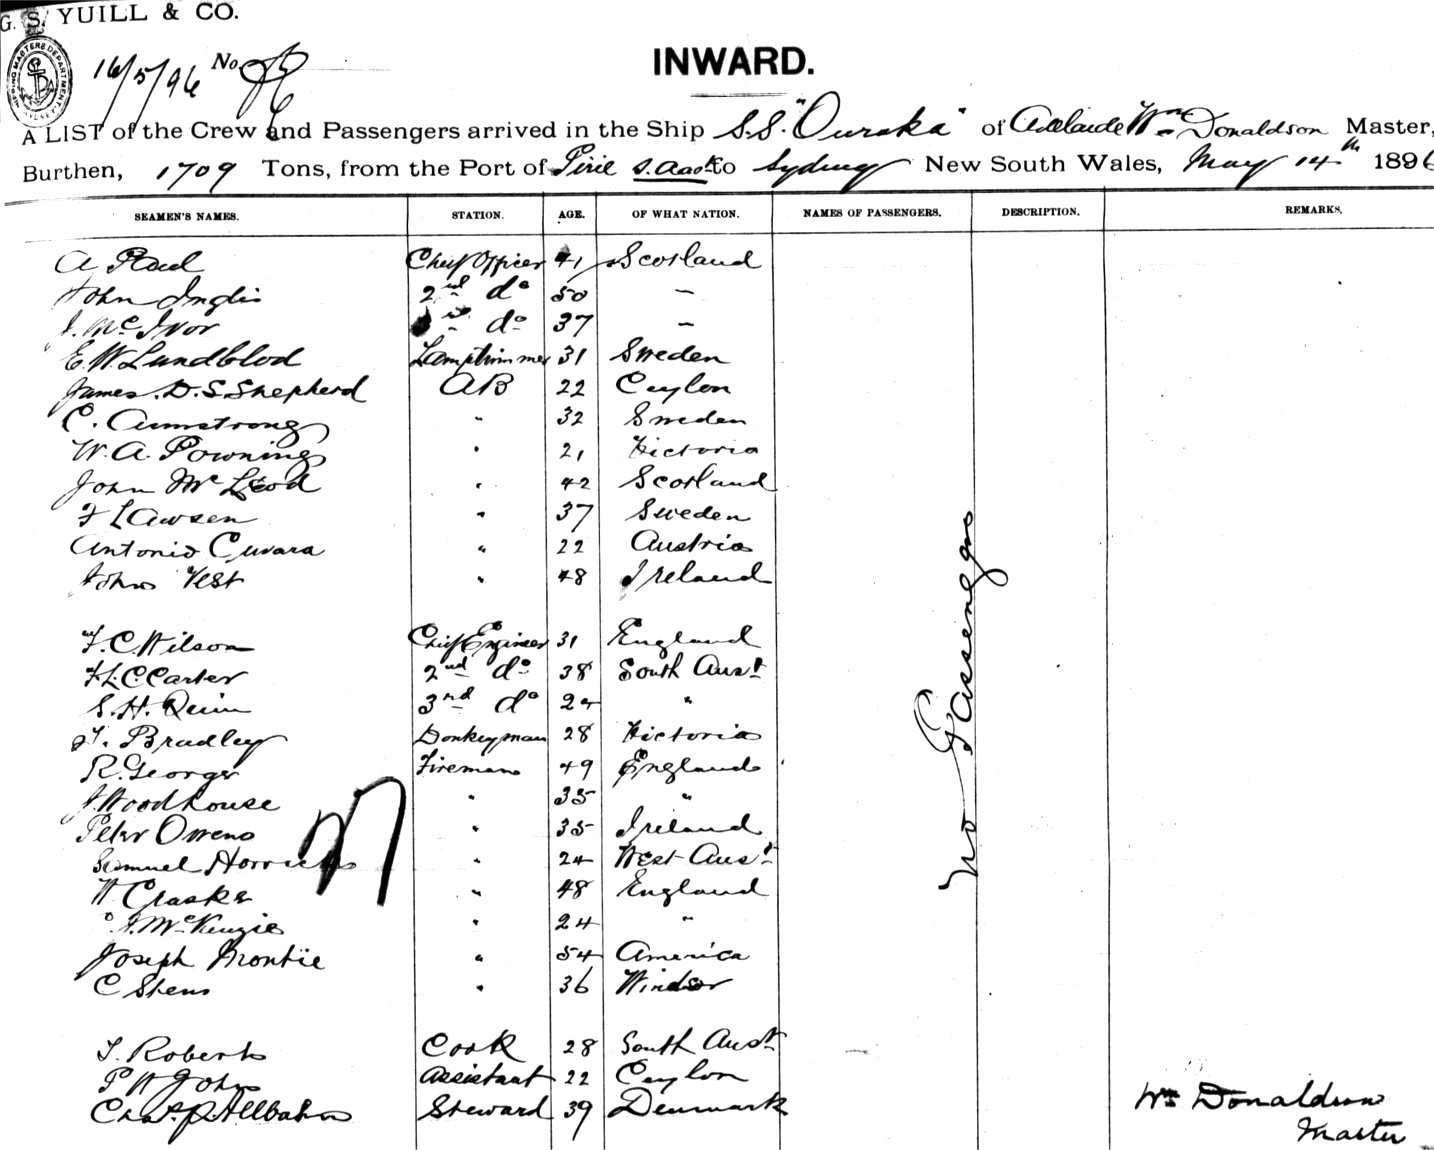 G. S. YUILL & CO.
16/5/96 No
INWARD.
A LIST of the Crew and Passengers arrived in the Ship S.S. "Ouraka" of Adelaide Wm Donaldson Master,
Burthen, 1709 Tons, from the Port of Pirie S. Aust to Sydney New South Wales, May 14th 1896
SEAMEN'S NAMES. STATION. AGE. OF WHAT NATION. NAMES OF PASSENGERS. DESCRIPTION. REMARKS.
A Paul Chief Officer 41 Scotland
John Inglis 2nd do 50 "
J. McIvor do 37 "
E. W. Lundblod Lamptrimmer 31 Sweden
James. D. S. Shepherd AB 22 Ceylon
C. Armstrong " 32 Sweden
W. A. Powning " 21 Victoria
John McLeod " 42 Scotland
F Lawsen " 37 Sweden
Antonio Cuvara " 22 Austria
John West " 48 Ireland
F. C. Wilson Chief Engineer 31 England
H. L. C Carter 2nd do 38 South Aust
S. H. Quin 3rd do 24 "
Bradley Donkeyman 28 Victoria
R. George Fireman 49 England
J. Woodhouse " 35 "
Peter Owens " 35 Ireland
Samuel " 24 West Aust
W Craske " 48 England
J. McKenzie " 24 "
Joseph " 54 America
C " 36 Windsor
No Passengers
T. Roberts Cook 28 South Aust
P W John Assistant 22 Ceylon
Chas. Steward 39 Denmark
Wm Donaldson
Master